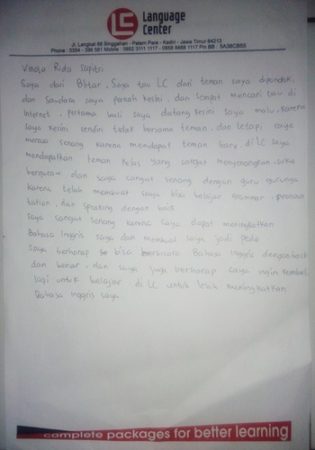 LC
Language
Center
Jl. Langkat 88 Singgahan - Pelem Pare - Kediri - Jawa Timur 64213
Phone : 0354 - 396 581 Mobile : 0852 3111 1117 - 0858 6466 1117 Pin BB : 5A38CB55
Vinosa Rida Saputri
Saya dari Blitar, Saya tau LC dari teman saya dipondok,
dan Saudara saya pernah kesini, dan sempat mencari tau di
Internet, pertama kali saya datang kesini saya malu, karena
saya kesini sendiri tidak bersama teman, dan tetapi saya
merasa senang karena mendapat teman baru, di LC saya
mendapatkan teman kelas yang sangat menyenangkan, suka
bergurau dan saya sangat senang dengan guru gurunya
karena telah membuat saya bisa belajar grammar, pronoun
tation, dan speaking dengan baik
Saya sangat senang karena saya dapat meningkatkan
Bahasa Inggris saya dan membuat saya jadi pede
saya berharap bisa berbicara Bahasa Inggris dengan baik
dan benar, dan saya juga berharap saya ingin kembali
lagi untuk belajar di LC untuk lebih meningkatkan
Bahasa Inggris saya
complete packages for better learning